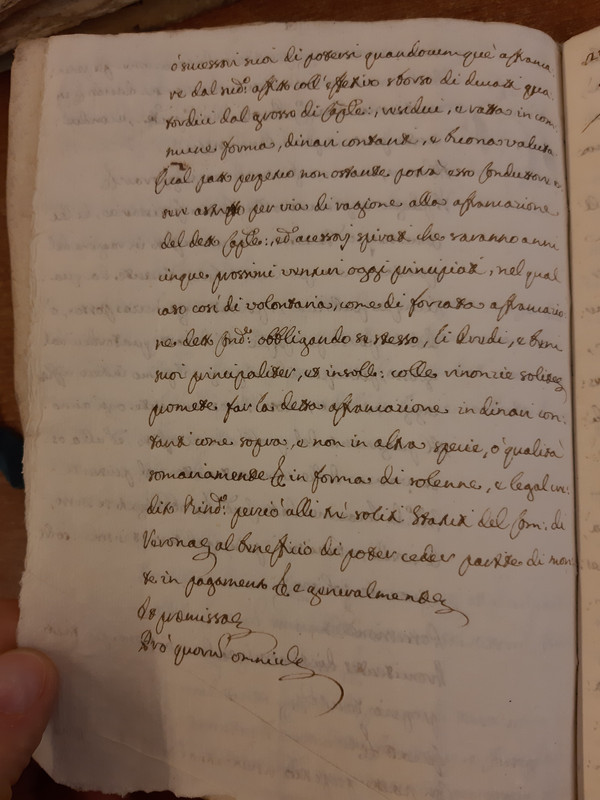 ò sucessori suoi di potersi quandocumquè affranca-
re dal sud:º affitto coll'effetivo sborso di ducati qua-
tordici dal grosso di Caple:, residui, e ratta in com-
mune forma, dinari contanti, e buona valuta
qual patto perpetuo non ostante potrà esso Conduttore es-
sere astretto per via di ragione alla affrancazione
del detto Caple:, ed acessorj spirati che saranno anni
cinque prossimi venturi oggi principiati, nel qual
caso così di volontaria, come di forzata affrancazio-
ne detto Cond:e obbligando se stesso, li Eredi, e beni
suoi principaliter, et in soll: colle rinonzie solite
promette far la detta affrancazione in dinari con-
tanti come sopra, e non in altra specie, ò qualità
somariamente in forma di solenne, e legal
perciò alli soliti Statuti del Com: di
Verona al beneficio di poter ceder partite di mon-
te in pagamento e generalmente
Et premissa
Prò quorum omnium